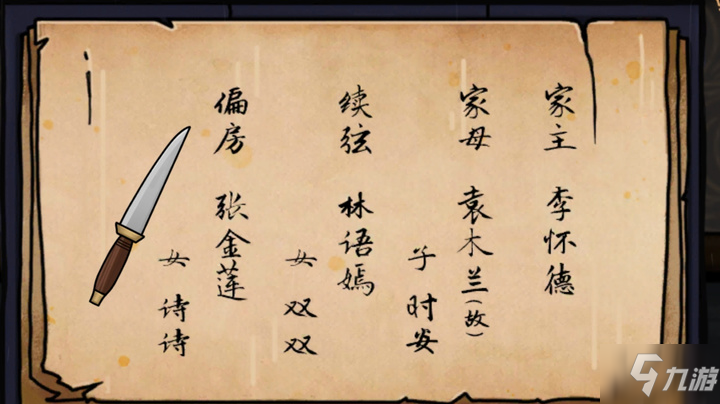 家主 李怀德
家母 袁木兰（故）
子 时安
续弦 林语嫣
女 双双
偏房 张金莲
女 诗诗
九游